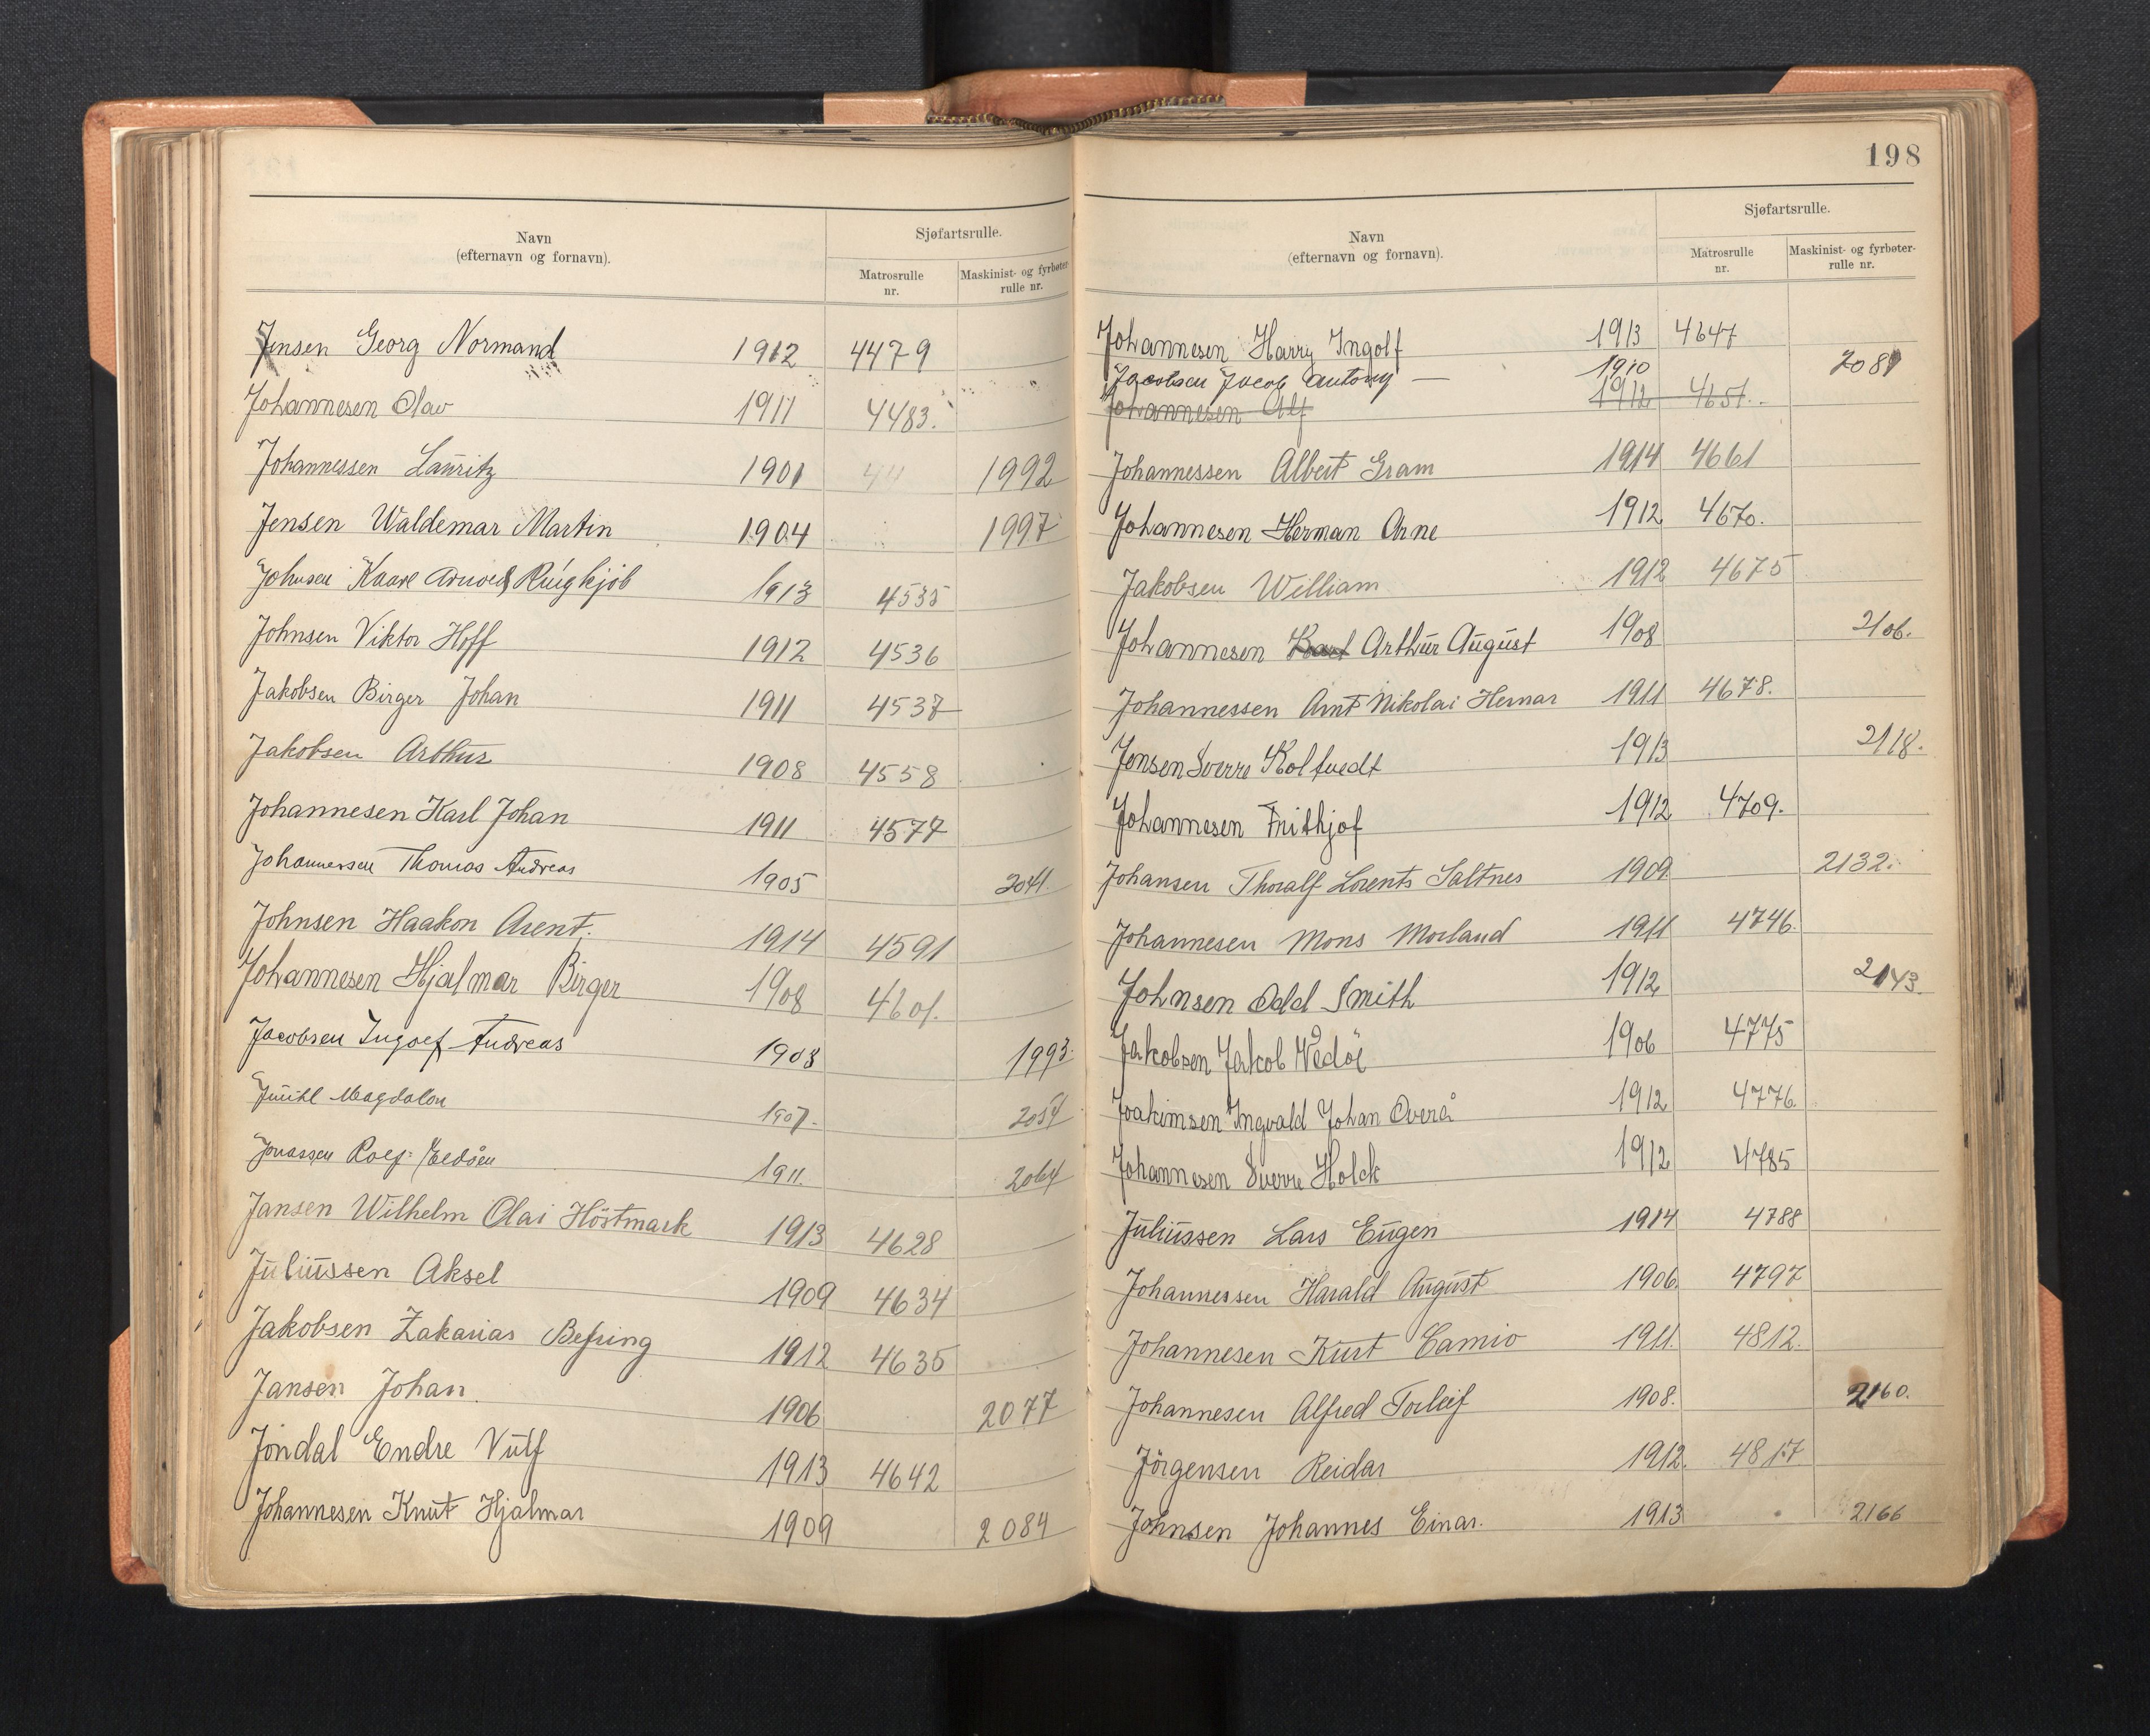 Navn
(efternavn og fornavn).
Sjøfartsrulle.
Matrosrulle nr.
Maskinist- og fyrbøter-rulle nr.
Jensen Georg Normand 1912 4479
Johannesen Olav 1911 4483.
Johannessen Lauritz 1901 1992
Jensen Waldemar Martin 1904 1997
Johnsen Kaare Arnold Ringkjöb 1913 4535
Johnsen Viktor Hoff 1912 4536
Jakobsen Birger Johan 1911 4537
Jakobsen Arthur 1908 4558
Johannesen Karl Johan 1911 4577
Johannessen Thomas Andreas 1905 2041.
Johnsen Haakon Arent. 1914 4591
Johannesen Hjalmar Birger 1908 4601.
Jacobsen Ingolf Andreas 1903 1993.
Magdalon 1907. 2057
Jonassen Rolf 1911. 2064
Jansen Wilhelm Olai Höstmark 1913 4628
Juliussen Aksel 1909 4634
Jakobsen Zakarias Befring 1912 4635
Jansen Johan 1906 2077
Jondal Endre Vulf 1913 4642
Johannesen Knut Hjalmar 1909 2084
198
Navn
(efternavn og fornavn).
Sjøfartsrulle.
Matrosrulle nr.
Maskinist- og fyrbøter-rulle nr.
Johannesen Harry Ingolf 1913 4647
Jacobsen Jacob Antony — 1910 2089
Johannesen Alf 1912 4651.
Johannessen Albert Gram 1914 4661
Johannesen Herman Arne 1912 4670.
Jakobsen William 1912 4675
Johannesen Karl Arthur August 1908 2106.
Johannessen Arnt Nikolai Hernar 1911 4678.
Jensen Sverre Koltvedt 1913 2118.
Johannesen Frithjof 1912 4709.
Johansen Thoralf Lorents Saltnes 1909 2132.
Johannesen Mons Morland 1911 4746.
Johnsen Odd Smith 1912 2143.
Jakobsen Jakob Vedöi 1906 4775
Joakimsen Ingvald Johan Overå 1912 4776.
Johannesen Sverre Holck 1912 4785
Juliussen Lars Eugen 1914 4788
Johannessen Harald August 1906. 4797
Johannesen Kurt Camio 1911. 4812.
Johannesen Alfred Torleif 1908. 2160.
Jörgensen Reidar 1912. 4817
Johnsen Johannes Einar. 1913 2166